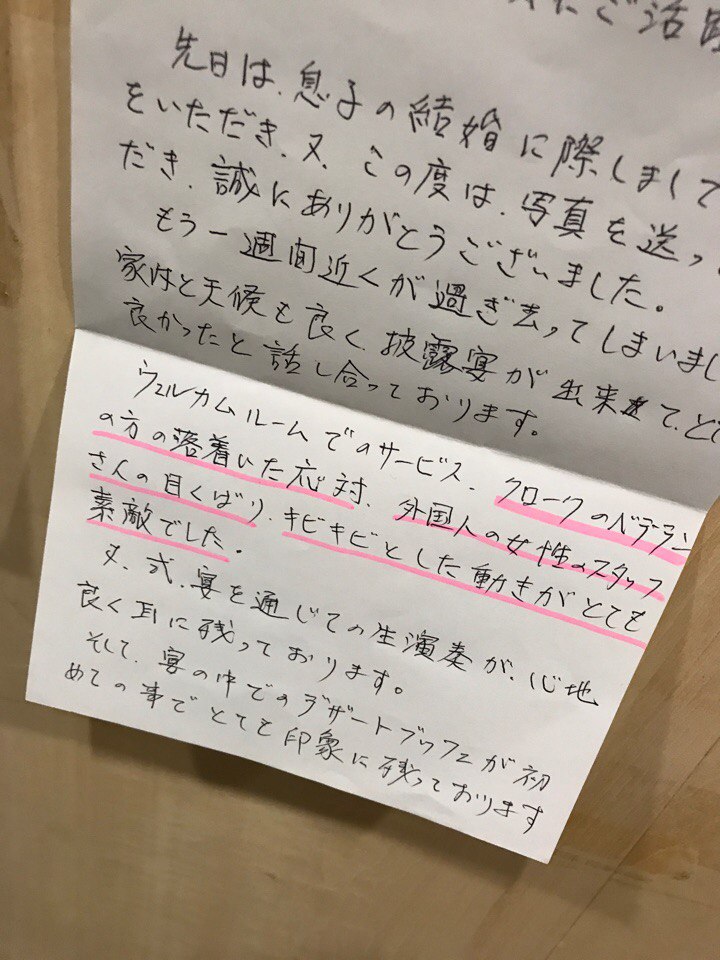 たご活
先日は、息子の結婚に際しまして
をいただき、又、この度は、写真を送っ
だき、誠にありがとうございました。
もう一週間近くが過ぎ去ってしまいまし
家内と天候も良く披露宴が出来て、とて
良かったと話し合っております。
ウェルカムルームでのサービス、クロークのベテラン
の方の落着いた応対、外国人の女性のスタッフ
さんの目くばり、キビキビとした動きがとても
素敵でした。
又、式、宴を通じての生演奏が、心地
良く耳に残っております。
そして、宴の中でのデザートブッフェが初
めての事でとても印象に残っております